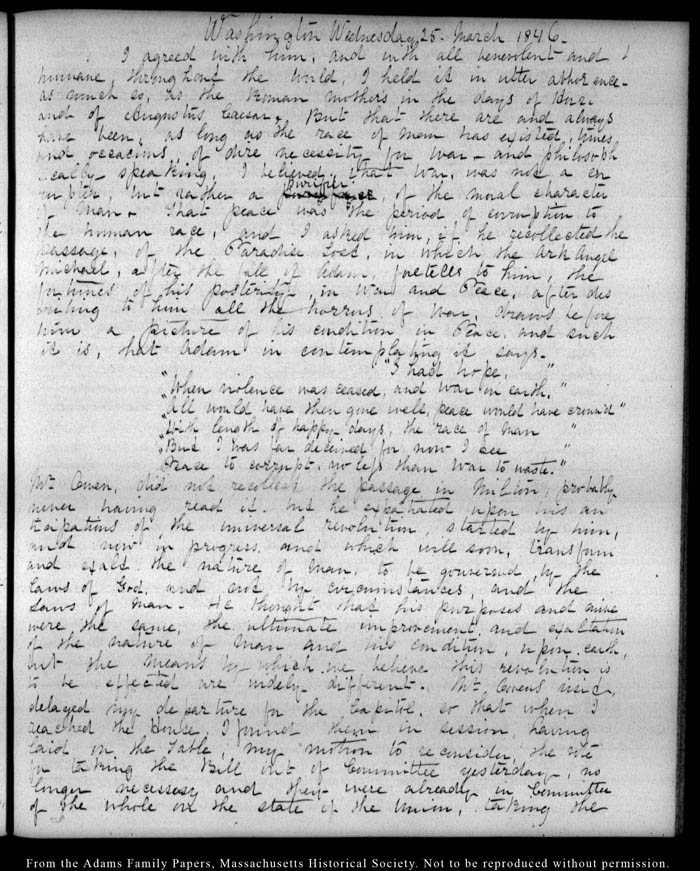 Washington Wednesday 25. March 1846.
I agreed with him, and with all benevolent and
humane, throughout the world, I held it in utter abhorence.
as much so, as the Roman mothers in the days of
and of Augustus Caesar. But that there are and always
have been, as long as the race of man has existed, times
and occasions, of dire necessity for war. and philosoph
ically speaking, I believed, that war, was not a cor
rupter, but rather a purifier, of the moral character
of man. That peace was the period of corruption to
the human race, and I asked him, if he recollected the
passage, of the Paradise Lost, in which the Ark Angel
Michael, after the fall of Adam, foretells to him, the
fortunes of his posterity, in war and Peace, after des
cribing to him all the horrors of war, draws before
him a picture of his condition in Peace, and such
it is, that Adam in contemplating it says.
"I had hope, "
"When violence was ceased, and war on earth, "
"All would have then gone well, peace would have crown'd "
"With length of happy days, the race of man "
"But I was far deceived for now I see "
"Peace to corrupt, no less than war to waste."
Mr Owen, did not recollect the passage in Milton, probably
never having read it. but he expatiated upon his an
ticipations of the universal revolution, started by him,
and now in progress, and which will soon, transform
and exalt the nature of man, to be gouverned, by the
Laws of God, and not by circumstances, and the
Laws of Man. He thought that his purposes and mine
were the same, the ultimate improvement, and exaltation
of the nature of man and his condition, upon earth,
but the means by which we believe this revolution is
to be effected are widely different. Mr Owens visit,
delayed my departure for the Capitol, so that when I
reached the House, I found them in session, having
laid on the Table, my motion to reconsider, the vote
for taking the Bill out of Committee yesterday, no
longer necessary and they were already in Committee
of the whole on the state of the Union, taking the
From the Adams Family Papers, Massachusetts Historical Society. Not to be reproduced without permission.